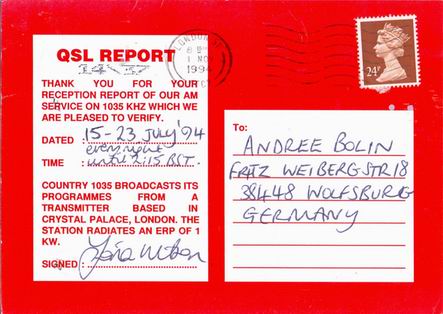 QSL REPORT
14 \ 37
THANK YOU FOR YOUR
RECEPTION REPORT OF OUR AM
SERVICE ON 1035 KHZ WHICH WE
ARE PLEASED TO VERIFY.
DATED : 15-23 JULY '94
every night
TIME : until 2:15 BST.
COUNTRY 1035 BROADCASTS ITS
PROGRAMMES FROM A
TRANSMITTER BASED IN
CRYSTAL PALACE, LONDON. THE
STATION RADIATES AN ERP OF 1
KW.
SIGNED :
LONDON
1 NO
1994
24P
To:
ANDREE BOLIN
FRITZ WEIBERGSTR 18
38448 WOLFSBURG
GERMANY